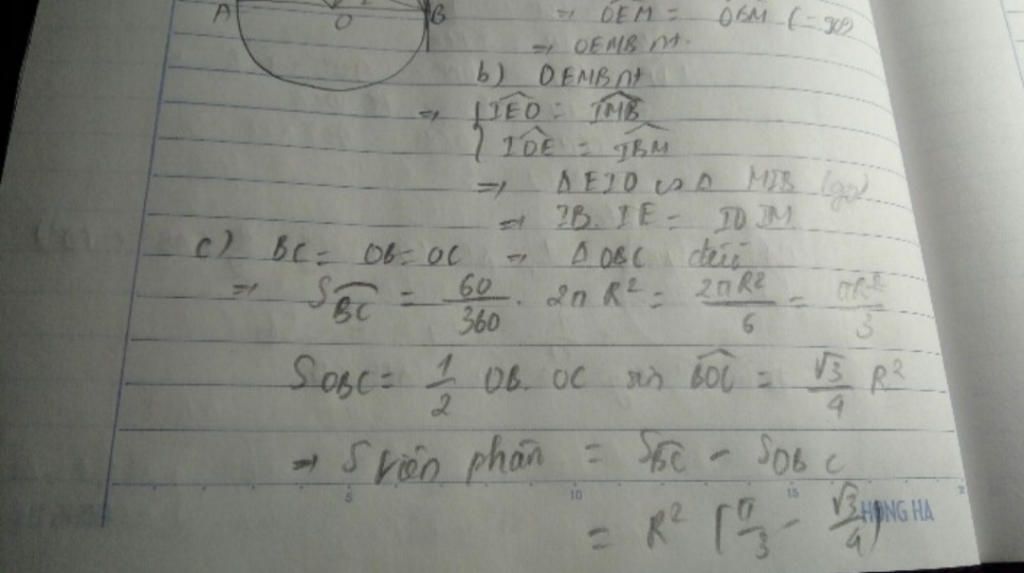 A O B
⇒ OEM = OBM (= 90)
⇒ OEMB nt.
b) OEMB nt
⇒ { IEO = IMB
IOE = IBM
⇒ Δ EIO ∽ Δ MIB (gg)
⇒ IB. IE = IO IM
c) BC = OB = OC ⇒ Δ OBC đều
⇒ S BC = 60/360 . 2π R² = 2πR²/6 = πR²/3
S OBC = 1/2 OB. OC sin BOC = √3/4 R²
⇒ S viên phân = S BC - S OBC
5 10 15
= R² (π/3 - √3/4)
HONG HA